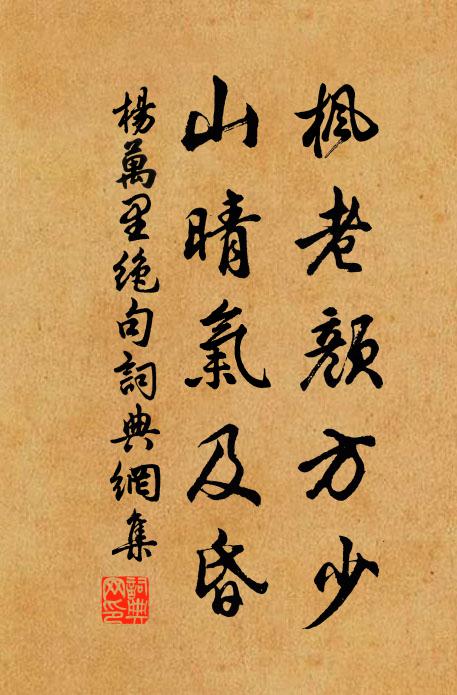 楓老顏方少
山晴氣及昏
楊萬里絶句詞典網集
詞典
网印